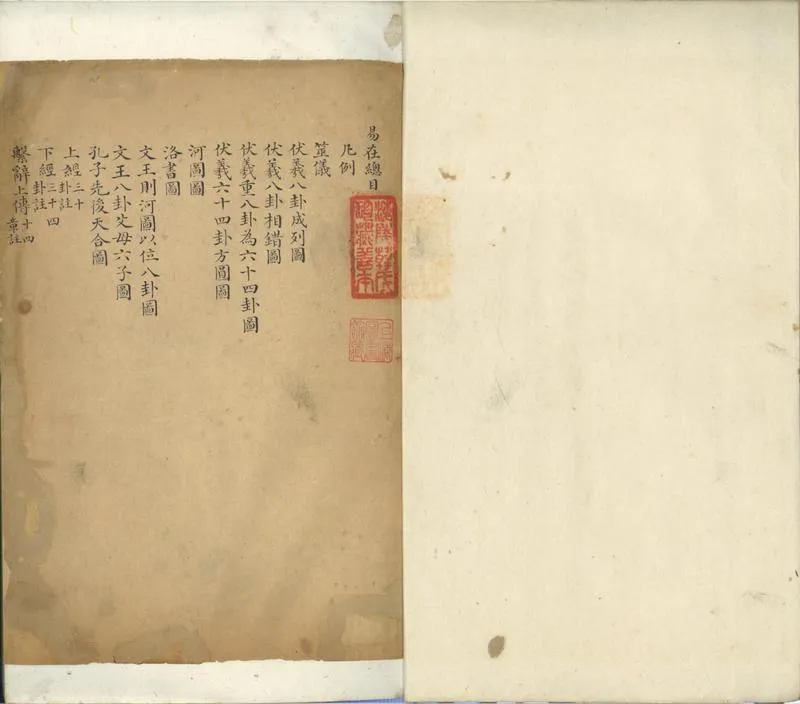 易在總目
凡例
筮儀
伏羲八卦成列圖
伏羲八卦相錯圖
伏羲重八卦為六十四卦圖
伏羲六十四卦方圓圖
河圖圖
洛書圖
文王則河圖以位八卦圖
文王八卦父母六子圖
孔子先後天合圖
上經三十卦註
下經三十四卦註
繫辭上傳十四章註